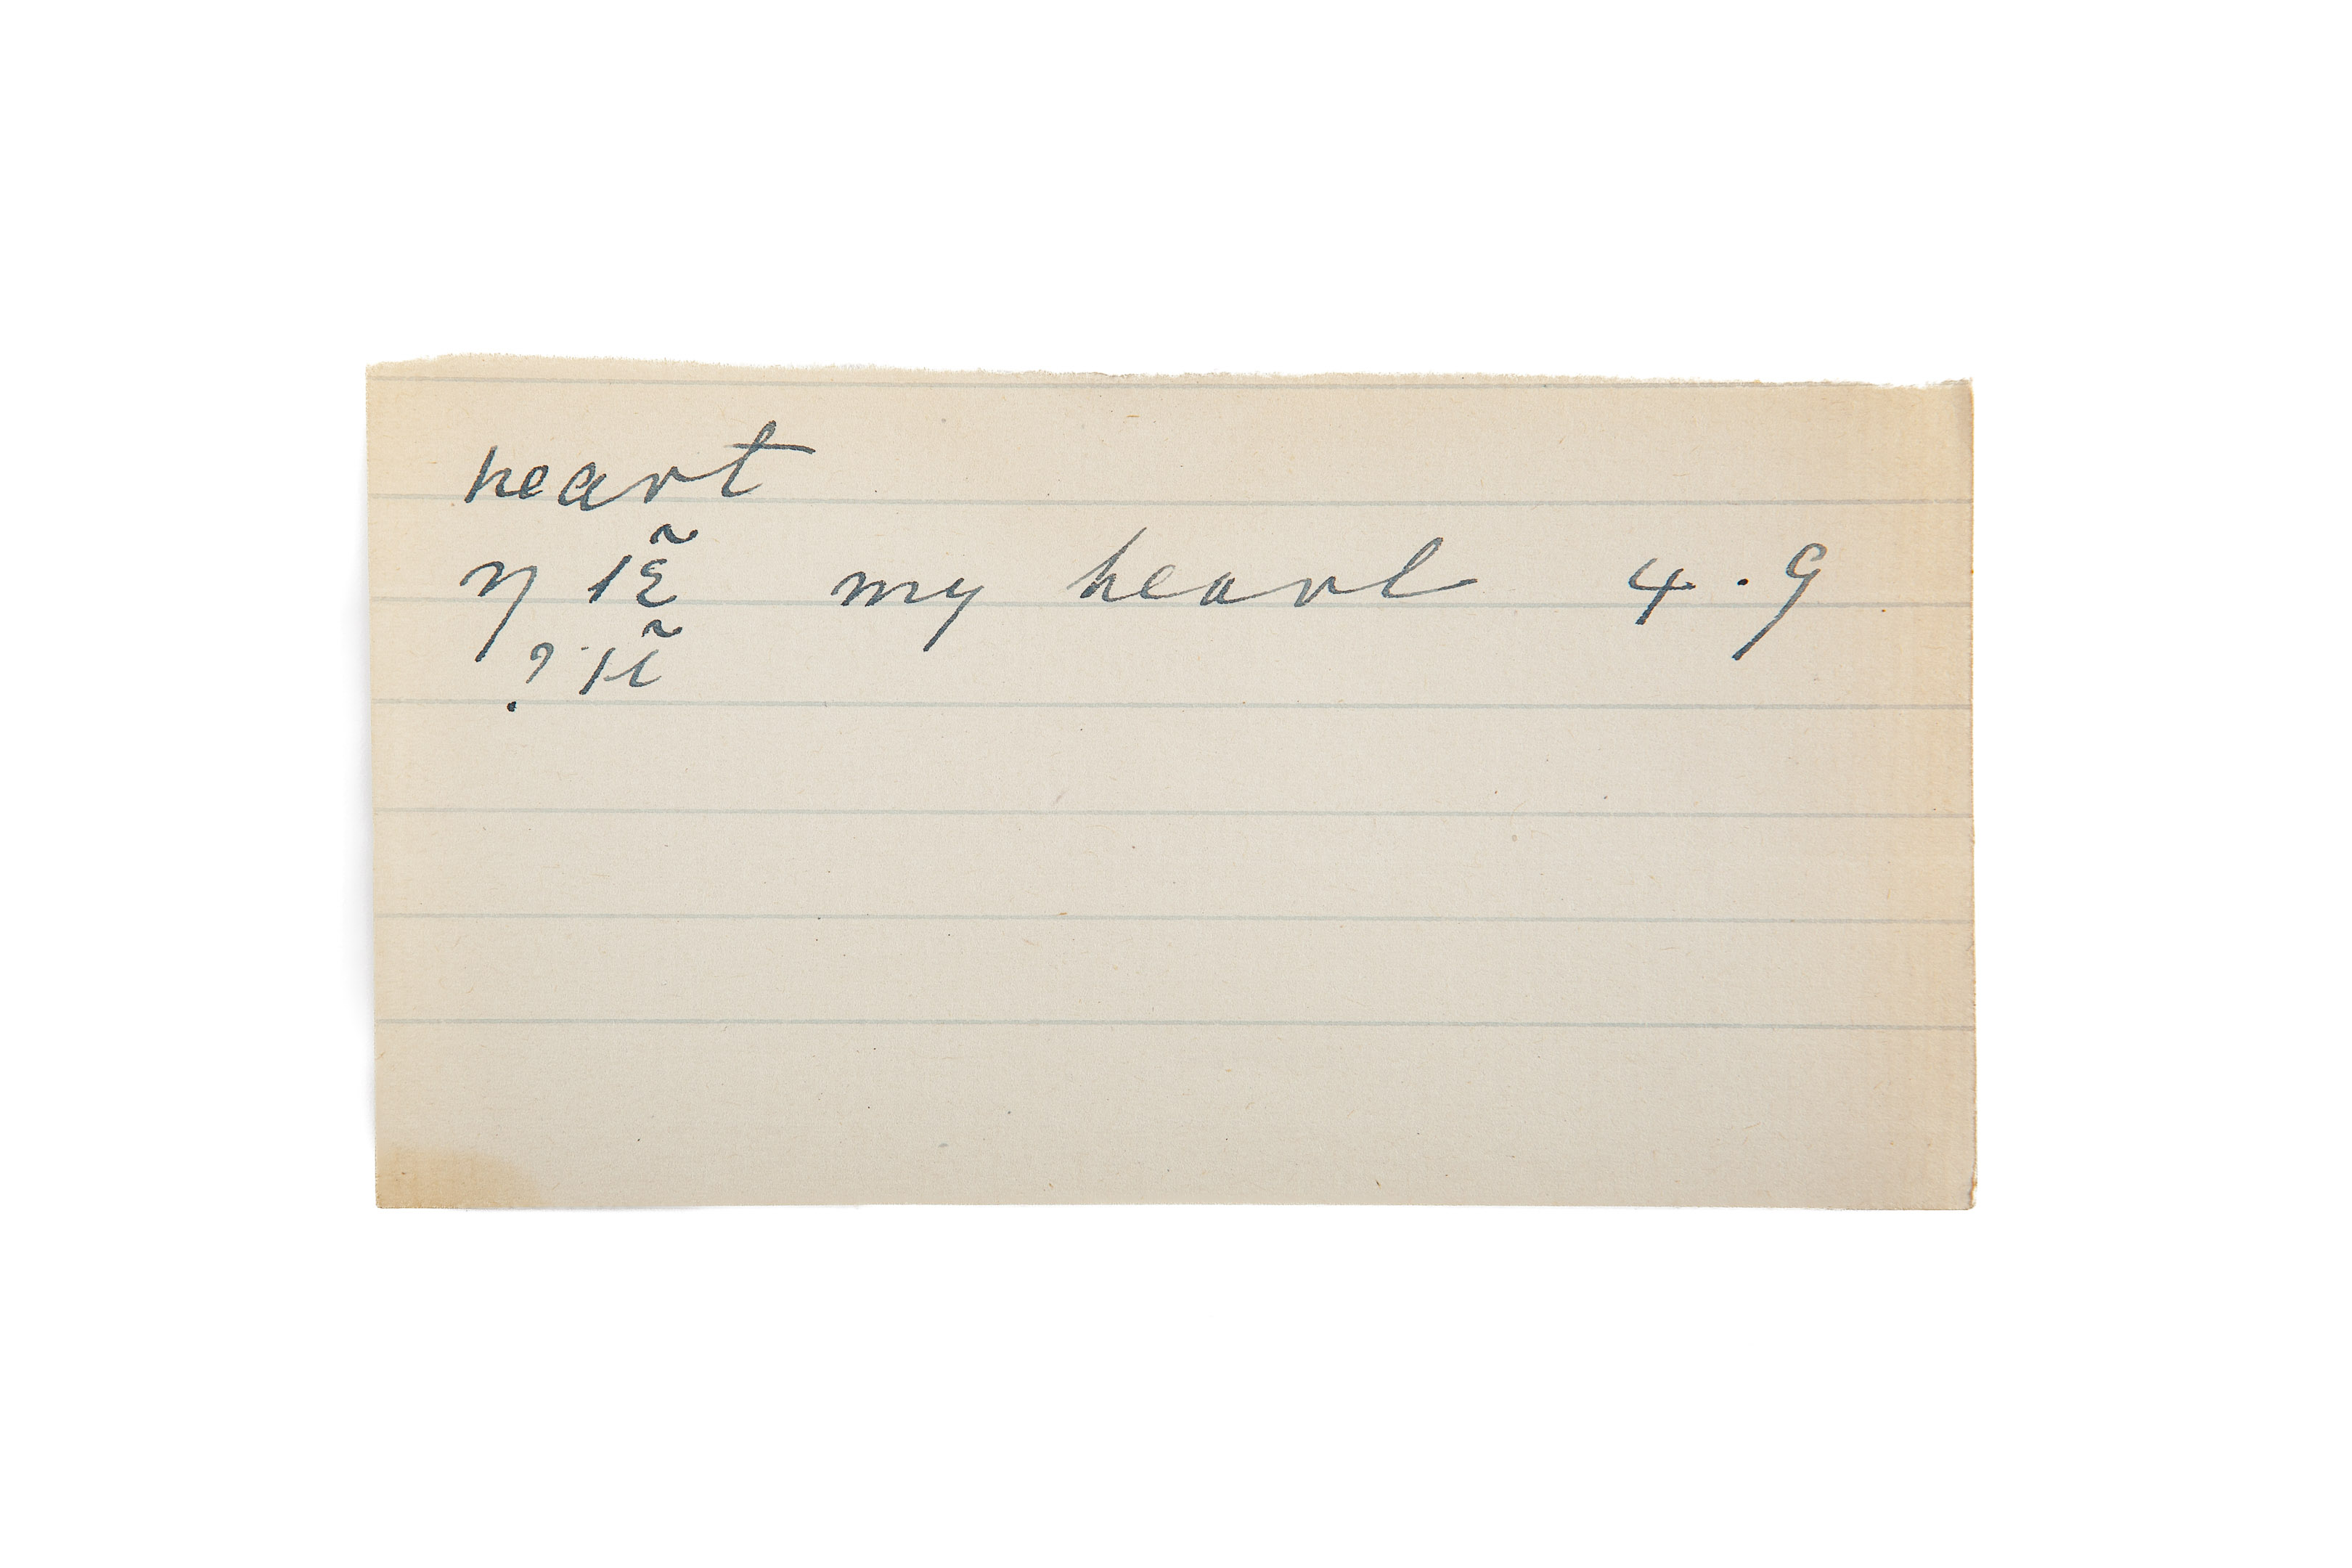 heart
ŋ |ɛ̃ my heart 4.9
? |ĩ